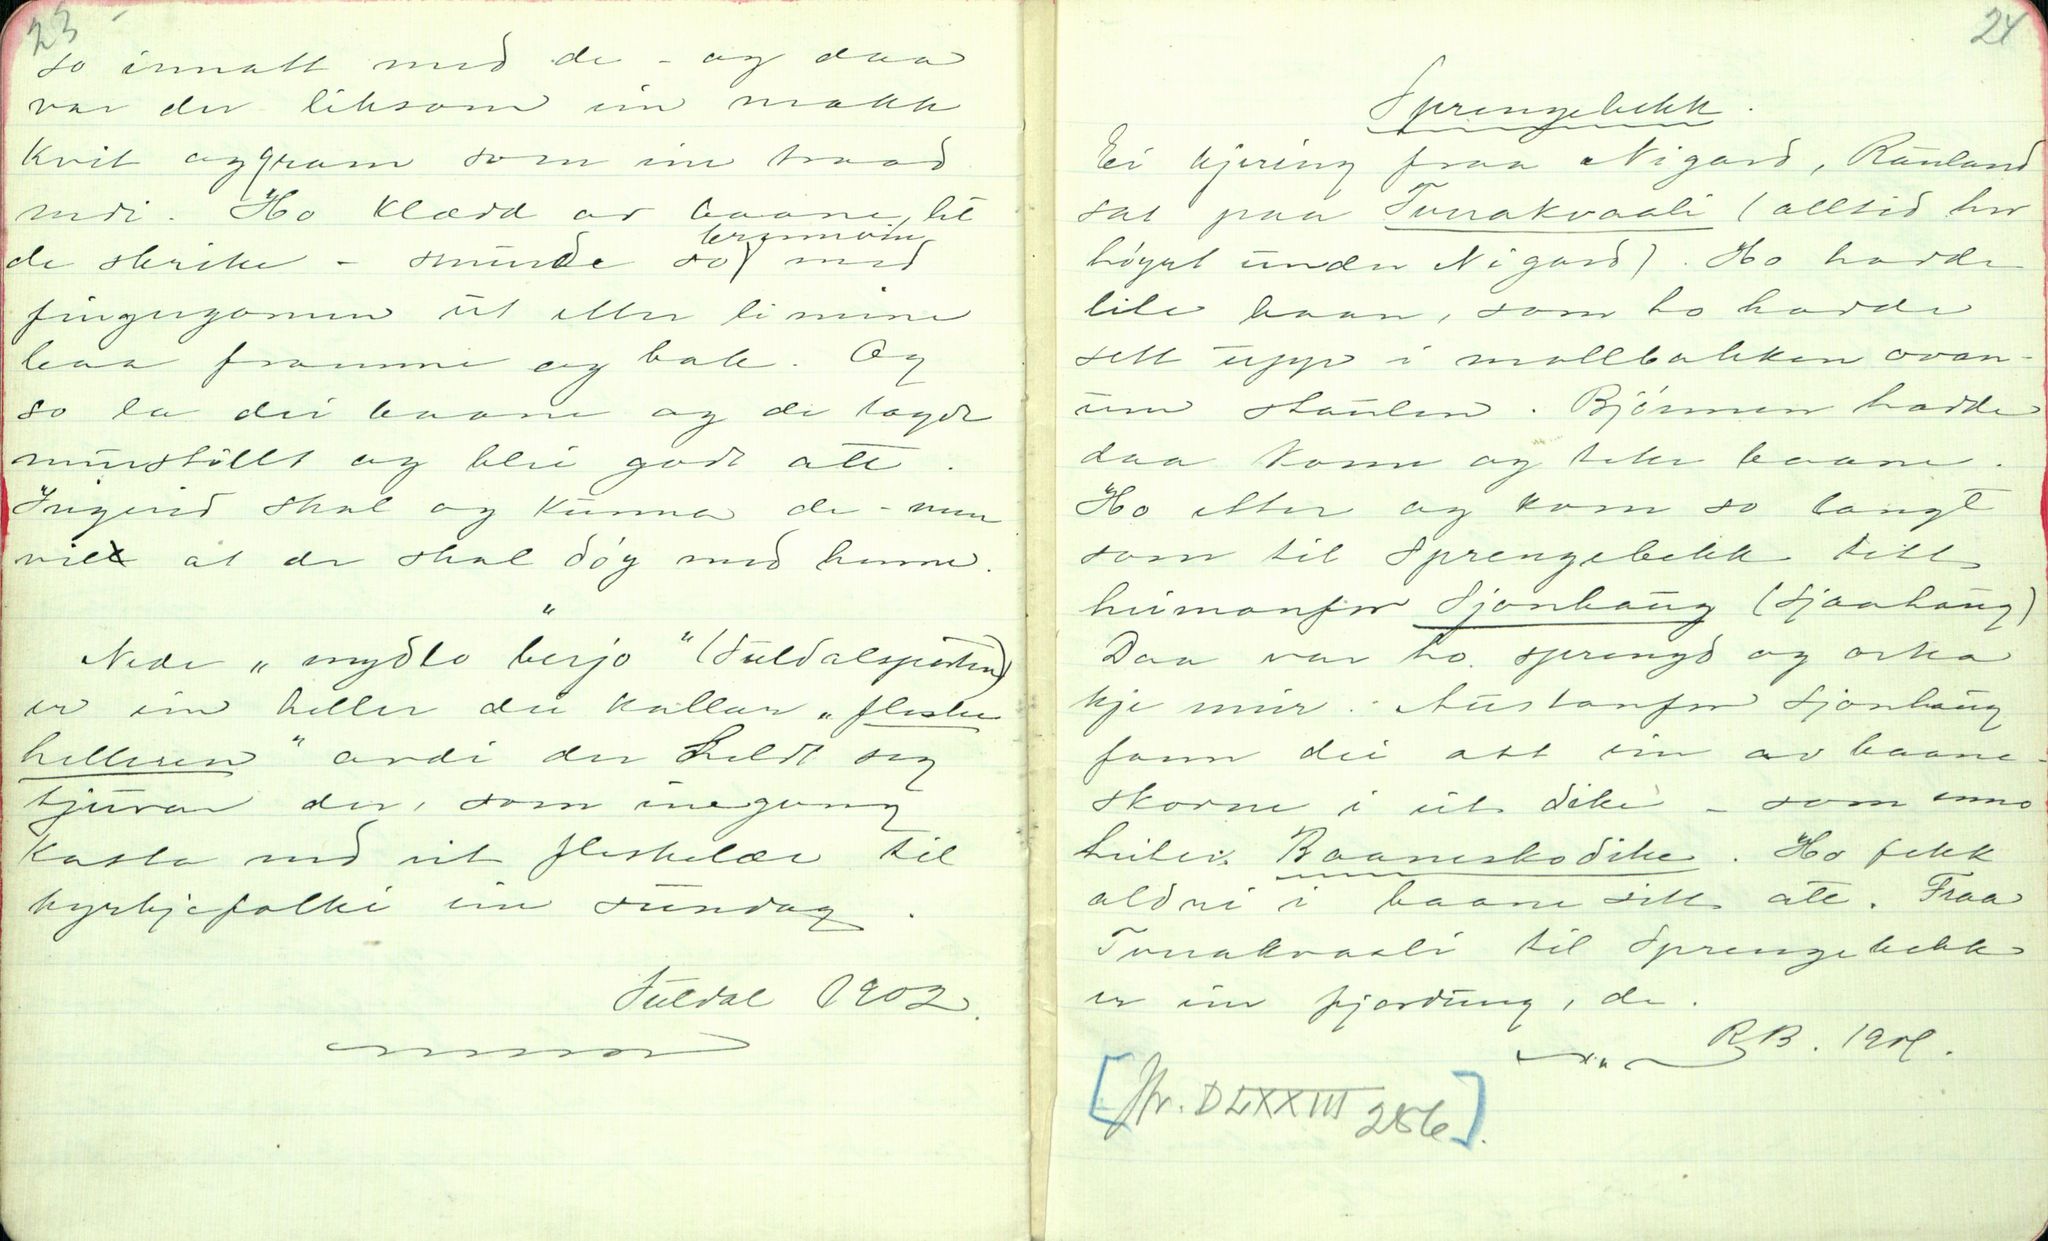 23
so innatt med de - og daa
var der liksom ein makk
kvit og gran som ein traad
nedi. Ho klædd av baane, let
de skrike - smurde so brennvin med
fingergomen ut etter limine
baa framme og bak. Og
so la dei baane og de tagde
murstillt og blei godt atte.
Ingerid skal og kunna de - men
vil at de skal döy med henne.
"
Nede "mydlo berjo" (Suldalsporten)
er ein heller dei kallar "fleske
helleren" avdi der heldt seg
tjuvar der, som eingong
kasta ned eit fleskelær til
kyrkjefolki ein sundag.
Suldal 1902.
24
Sprengebekk.
Ei kjering fraa Nigard, Rauland
sat paa Tvnakvaali (alltid hv
högrt under Nigard). Ho hadde
lite baan, som ho hadde
sett upp i mollbakken ovan-
um staulen. Björnen hadde
daa kome og teke baane.
Ho etter og kom so langt
som til Sprengebekk tett
heimanfor Sjonhaug (Sjaahaug)
Daa var ho sprengd og orka
kje meir. Austanfor Sjonhaug
fann dei att ein av baane-
skorne i eit dike - som enno
heiter Baaneskodike. Ho fekk
aldri i baane sitt atte. Fraa
Tvnakvaali til Sprengebekk
er ein fjordung, de.
R.B. 1901.
[Jfr. DLXXIII 256].